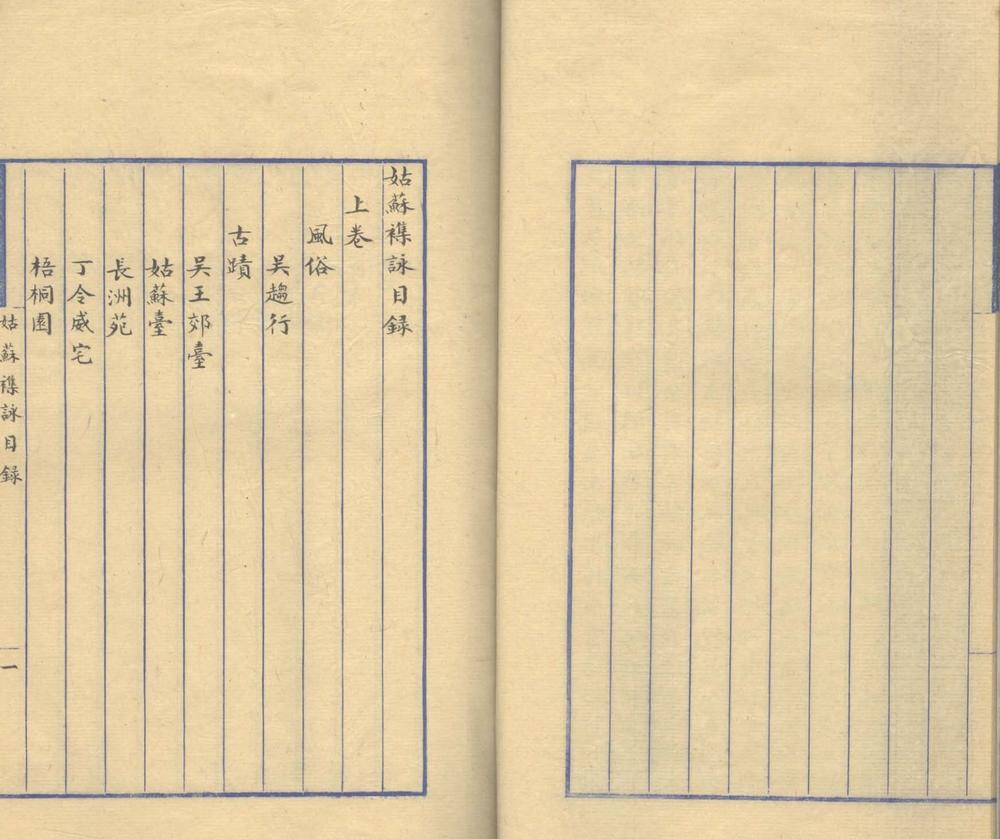 姑蘇襍詠目録
上卷
風俗
吴趨行
古蹟
吴王郊臺
姑蘇臺
長洲苑
丁令威宅
梧桐園
姑蘇襍詠目録
一